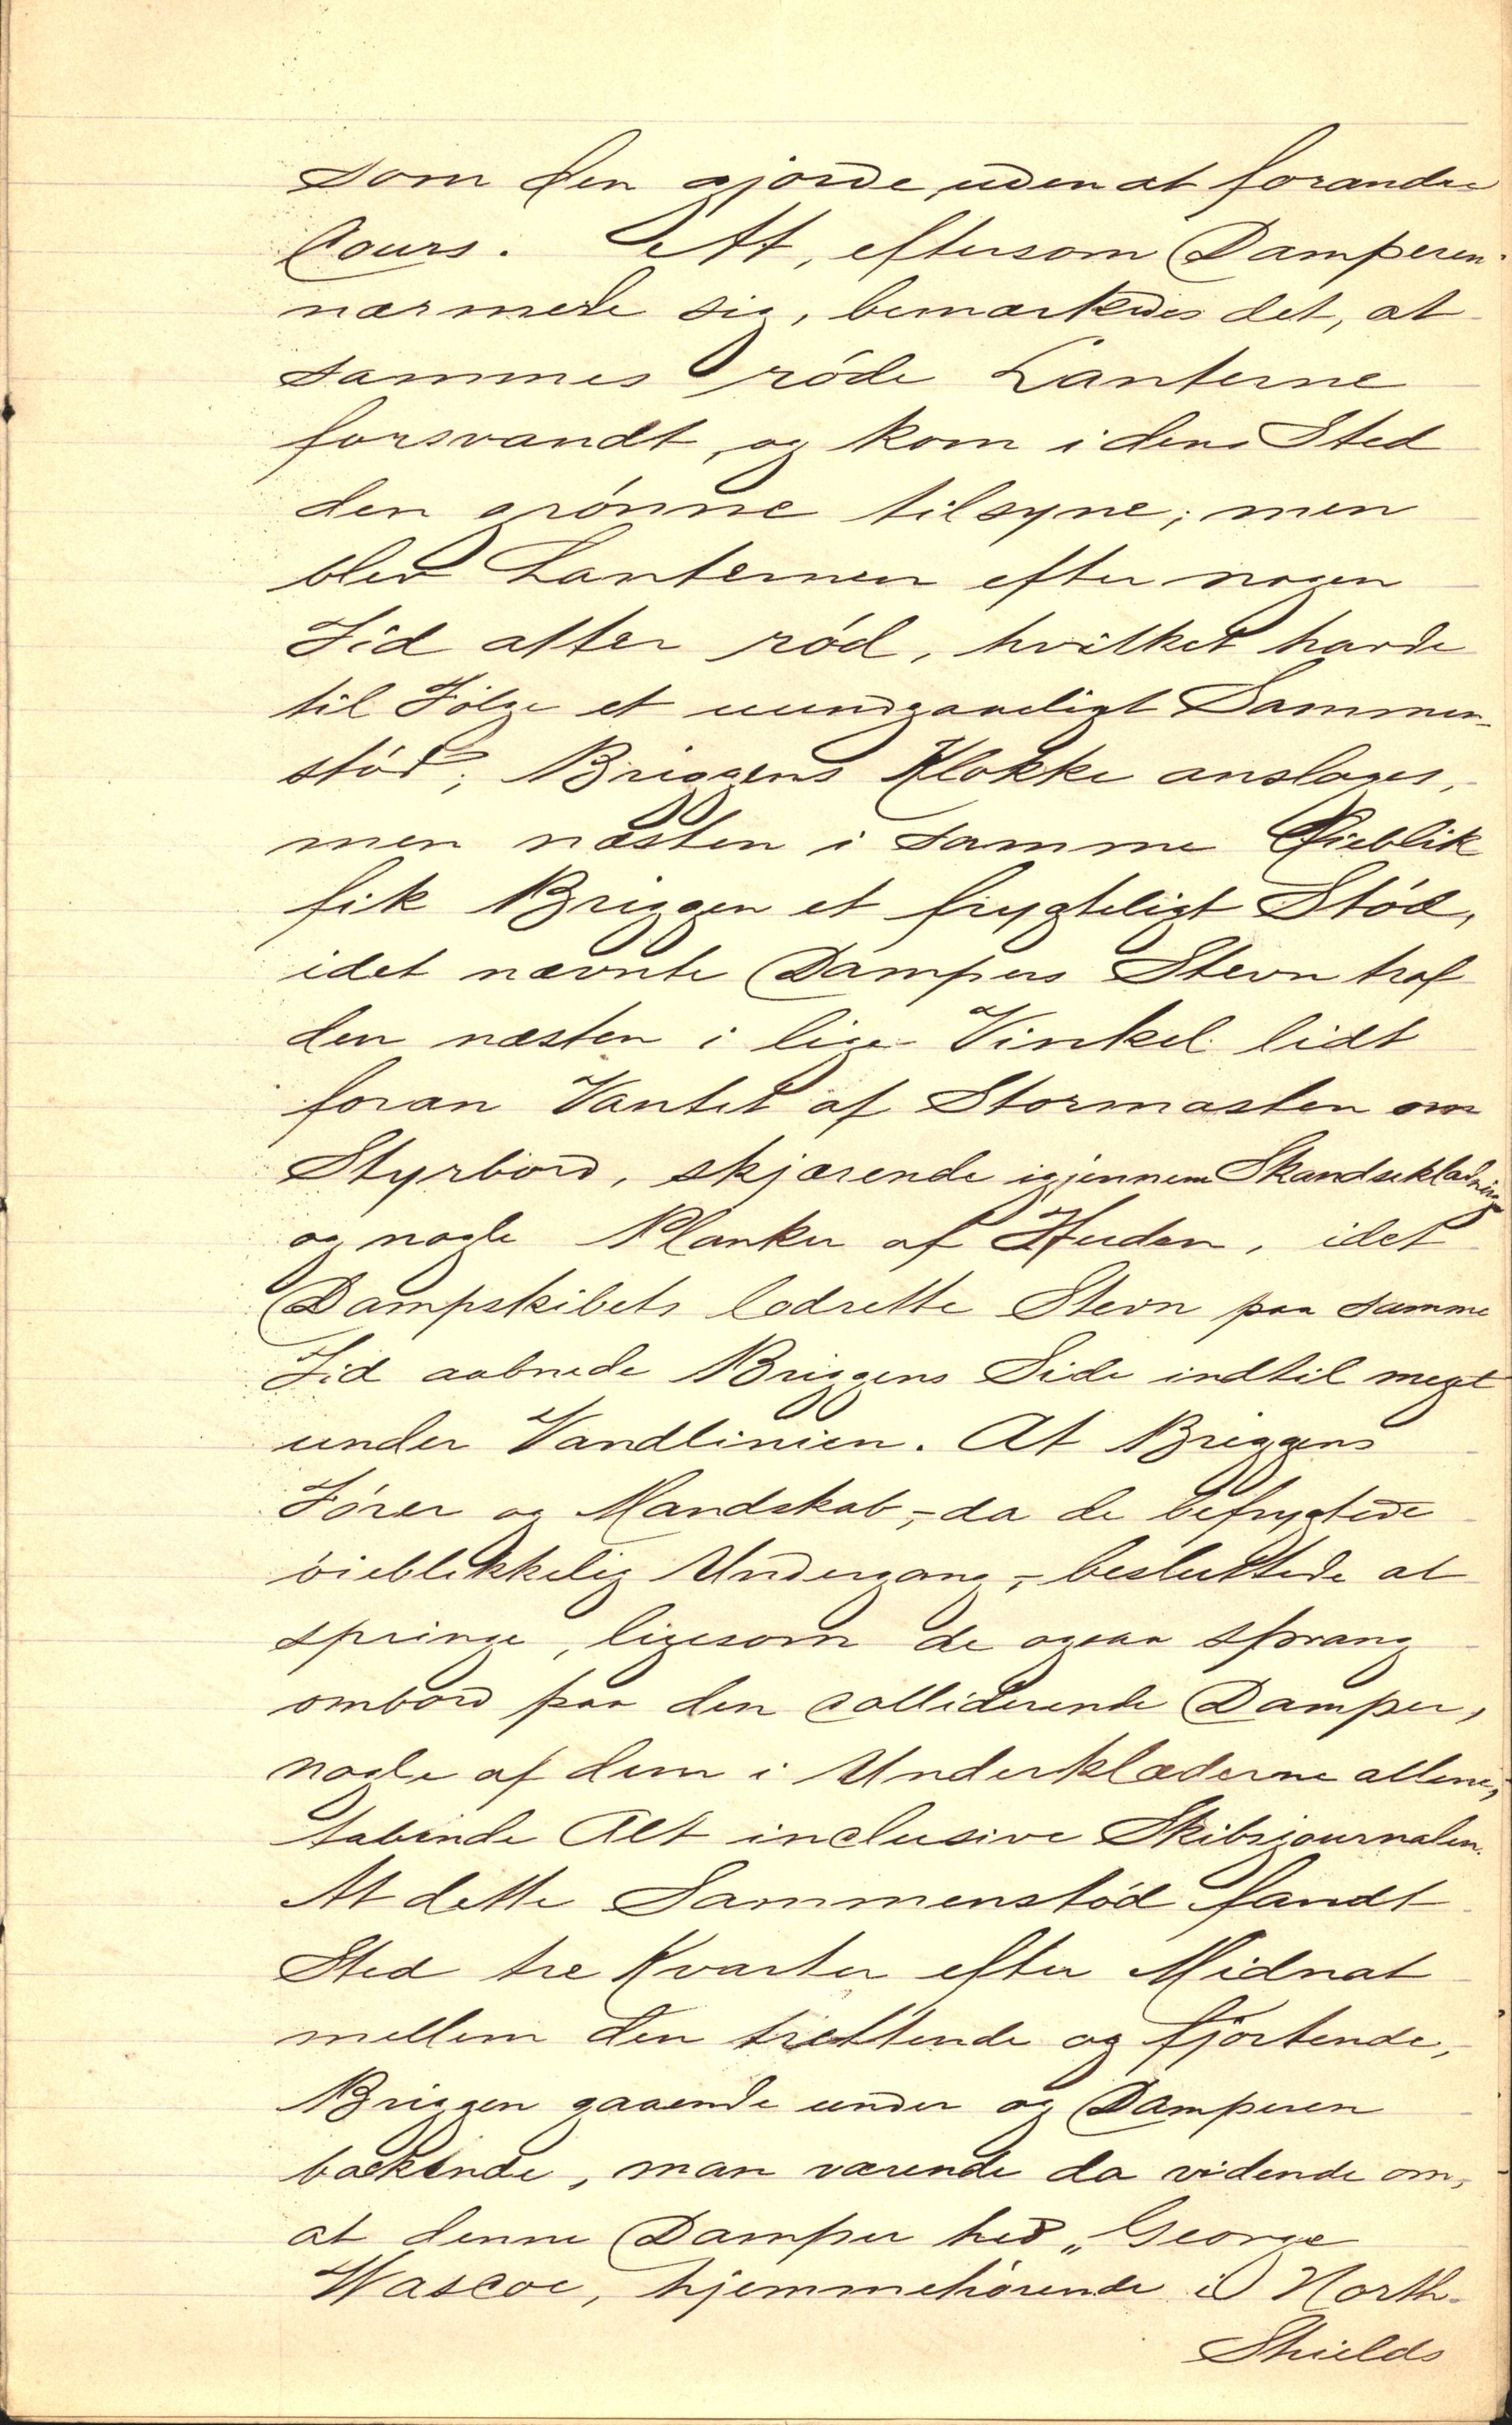 som den gjorde, uden at forandre
Cours. At, eftersom Damperen
nærmede sig, bemærkedes det, at
sammes róde Lanterne
forsvandt, og kom i dens Sted
den grónne tilsyne; men
blev Lanternen efter nogen
Tid atter ród, hvilket havde
til Fólge et uundgaaeligt Sammen-
stód; Briggens Klokke ansloges,
men næsten i samme Øieblik
fik Briggen et frygteligt Stód,
idet nævnte Dampers Stevn traf
den næsten i lige Vinkel lidt
foran Vantet af Stormasten om
Styrbord, skjærende igjennem Skandseklædning
og nogle Planker af Huden, idet
Dampskibets lodrette Stevn paa samme
Tid aabnede Briggens Side indtil megt
under Vandlinien. At Briggens
Fórer og Mandskab,- da de befrygtede
óieblikkelig Undergang,- besluttede at
springe, ligesom de ogsaa sprang
ombord paa den colliderende Damper,
nogle af dem i Underklæderne allene,
tabende Alt inclusive Skibsjournalen.
At dette Sammenstód fandt
Sted tre Kvarter efter Midnat
mellem den trettende og fjortende,
Briggen gaaende under og Damperen
backende, man værende da vidende om,
at denne Damper hed „George
Wascoe, hjemmehórende i North-
Shields